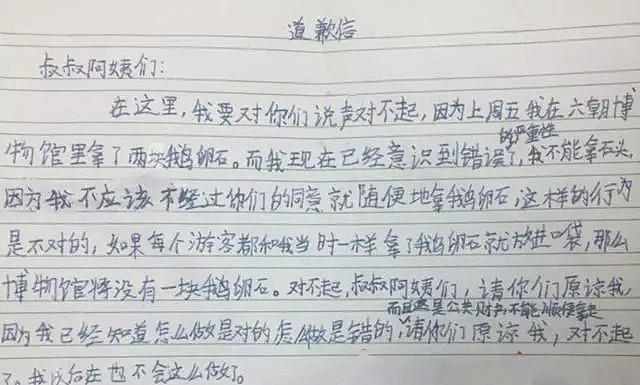 道歉信
叔叔阿姨们:
在这里,我要对你们说声对不起,因为上周五我在六朝博
物馆里拿了两块鹅卵石。而我现在已经意识到错误的严重性了,我不能拿石头,
因为我不应该不经过你们的同意就随便地拿鹅卵石,这样的行为
是不对的,如果每个游客都和我当时一样拿了鹅卵石就放进口袋,那么
博物馆将没有一块鹅卵石。对不起,叔叔阿姨们,请你们原谅我,
因为我已经知道怎么做是对的怎么做是错的,而且这是公共财物不能随便拿走请你们原谅我,对不起
了。我以后在也不会这么做了。